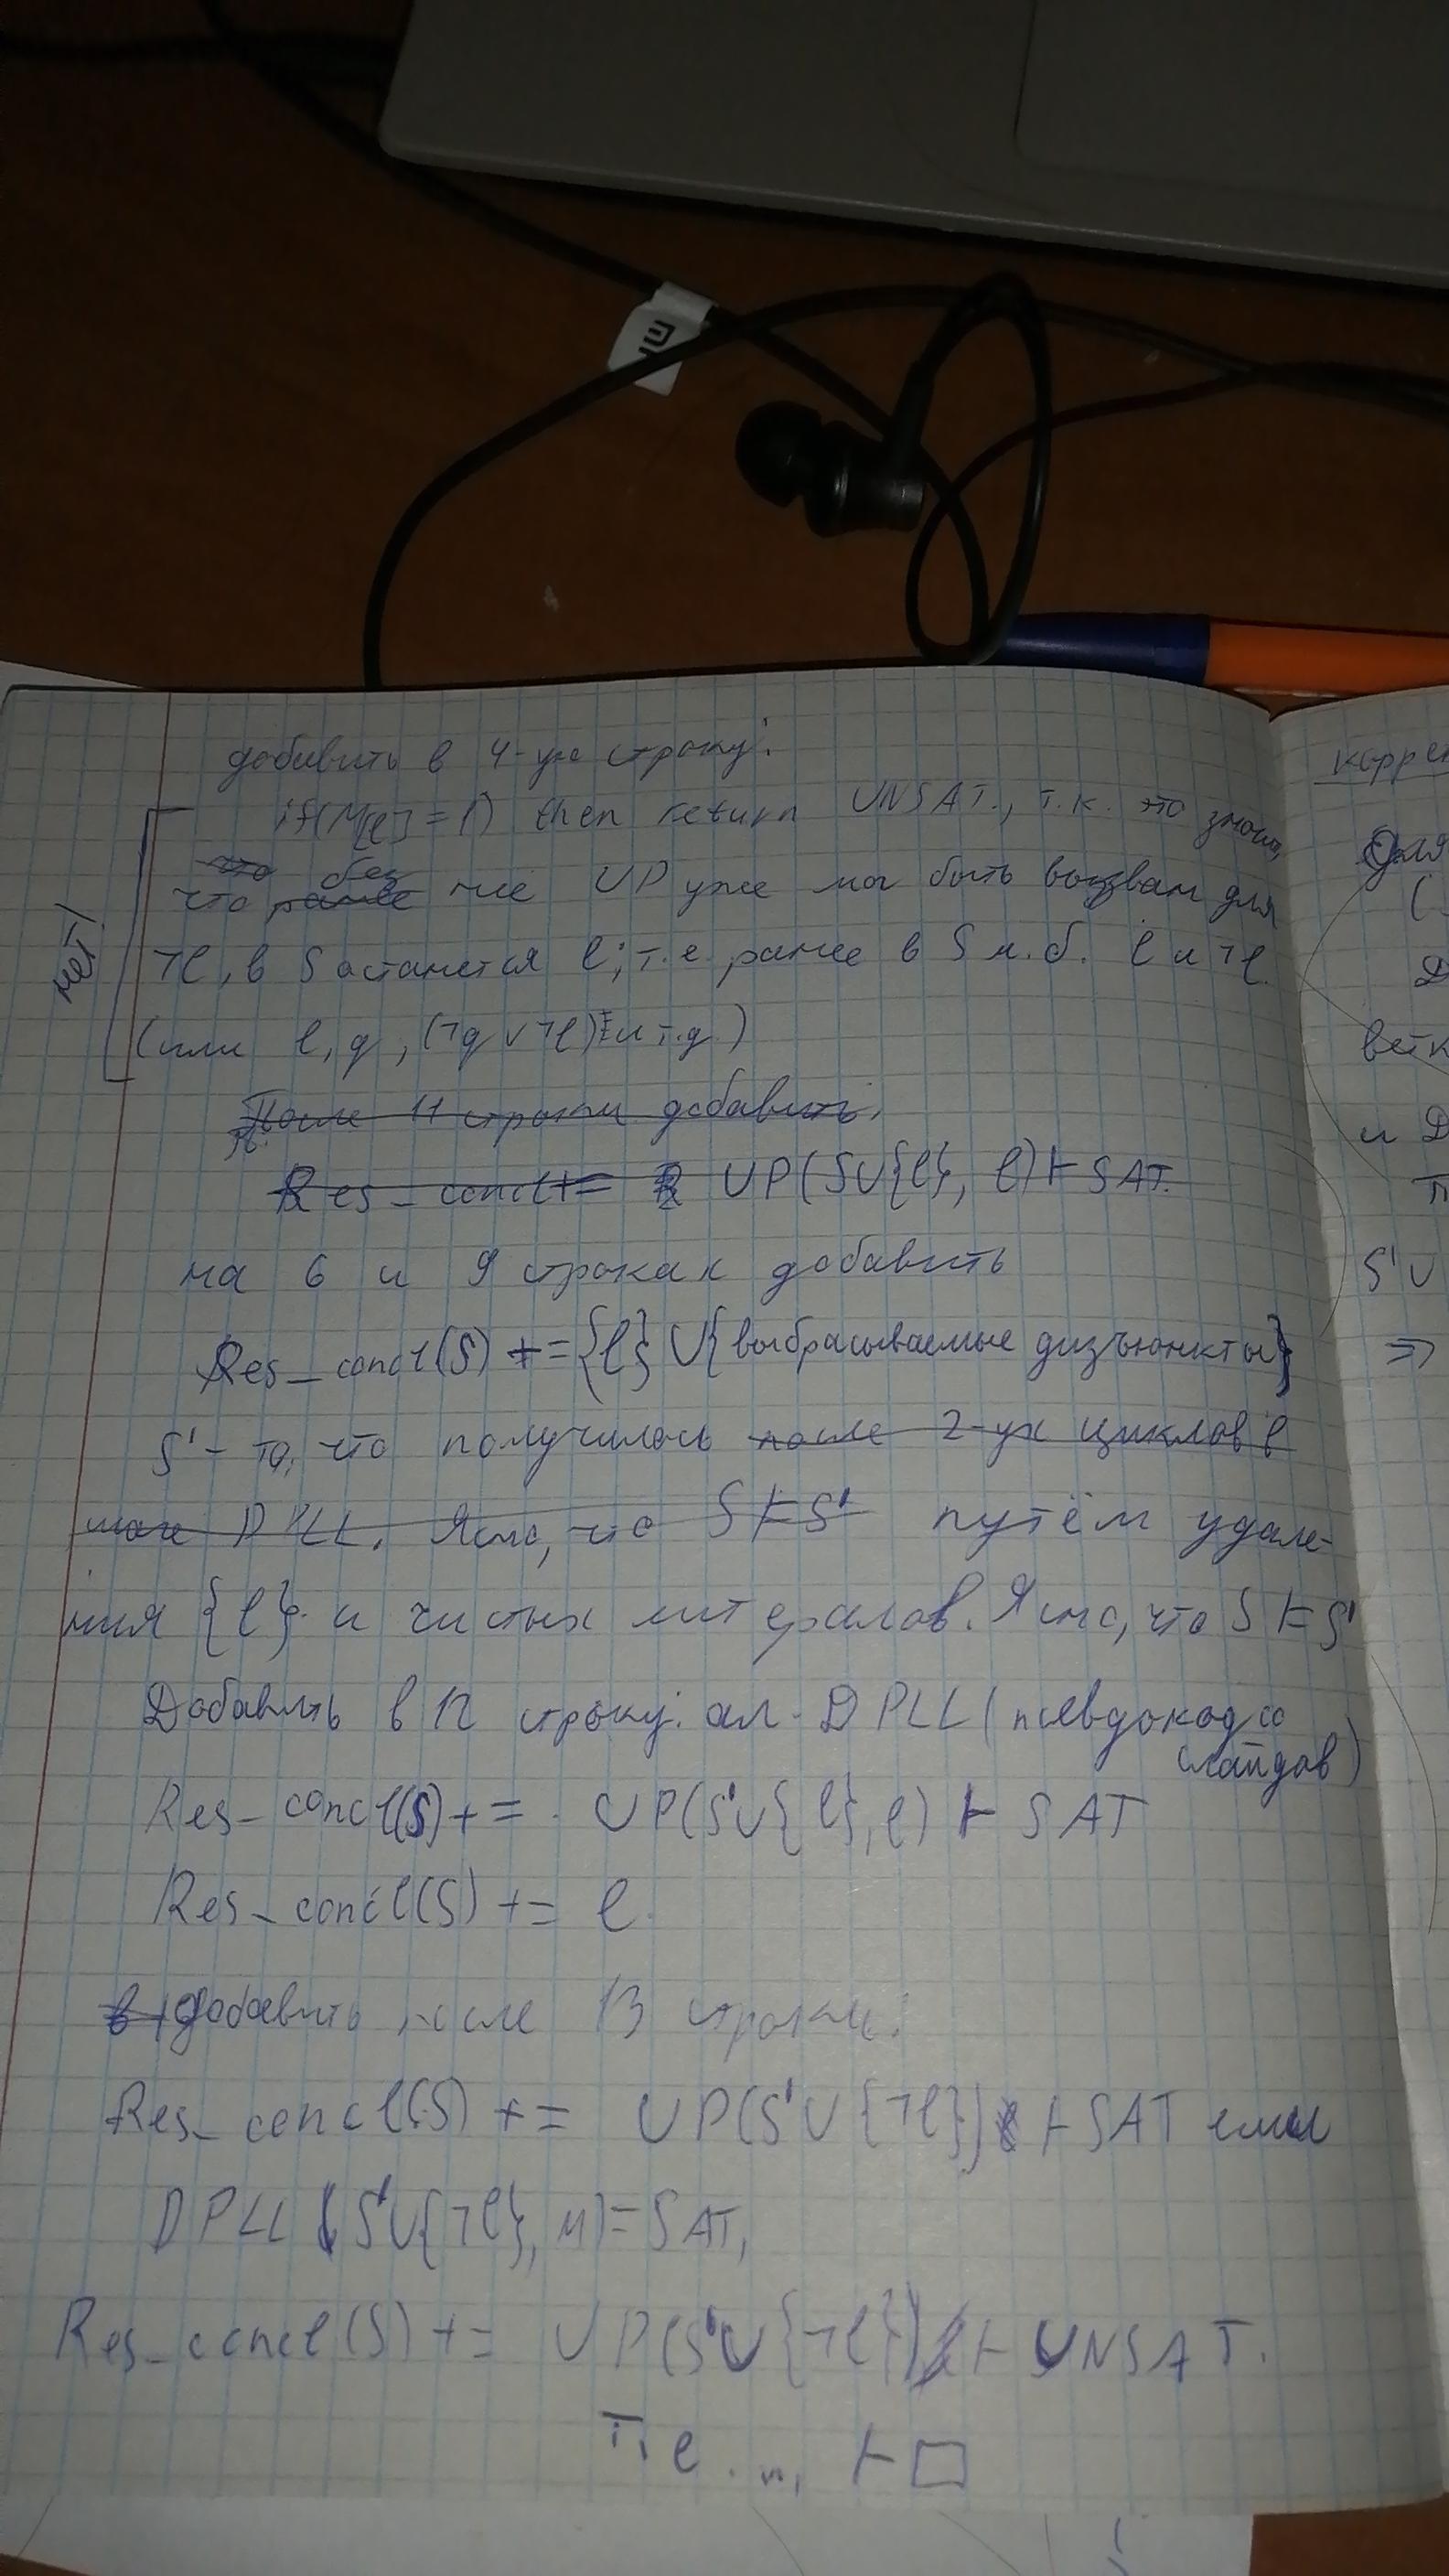 добавить в 4-ую строку:
if(M[l] = 1) then return UNSAT., т.к. это значит,
что без
что ранее не UP уже мог быть вызван для
¬l, в S останется l; т.е. ранее в S м.б. l и ¬l.
(или l, q, (¬q ∨ ¬l) и т.д.)
нет!
После 11 строки добавить:
Res_concl += UP(S∪{l}, l) ⊢ SAT.
на 6 и 9 строках добавить
Res_concl(S) += {l} ∪ {выбрасываемые дизъюнкты}
S' - то, что получилось после 2-ух циклов в
DPLL. Ясно, что S ⊨ S' путём удале-
ния {l} и чистых литералов. Ясно, что S ⊨ S'
Добавить в 12 строку. ал. DPLL (псевдокод со
слайдов)
Res_concl(S) += UP(S'∪{l}, l) ⊢ SAT
Res_concl(S) += l
в добавить после 13 строки:
Res_concl(S) += UP(S'∪{¬l}) ⊢ SAT если
DPLL(S'∪{¬l}, M) = SAT,
Res_concl(S) += UP(S'∪{¬l}) ⊢ UNSAT.
Т.е ... ⊢ □
корре
Для
(
D
ветк
и D
П
S' ∪
⇒